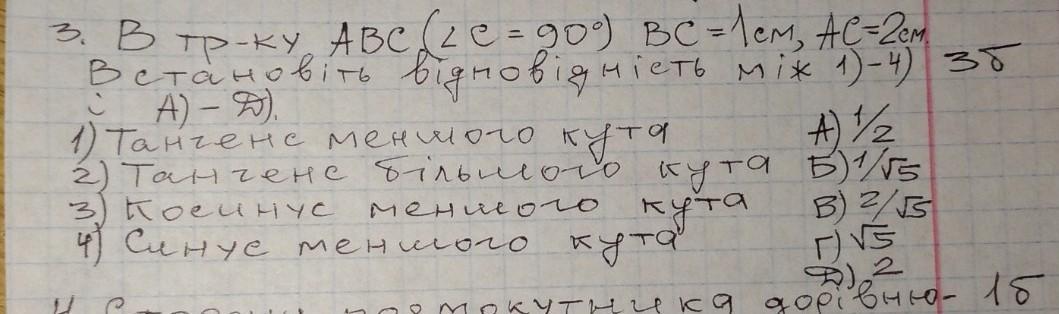 3. В тр-ку ABC (∠C = 90°) BC = 1 см, AC = 2 см.
Встановіть відповідність між 1) – 4) 3б
і А) – Д).
1) Тангенс меншого кута А) 1/2
2) Тангенс більшого кута Б) 1/√5
3) Косинус меншого кута В) 2/√5
4) Синус меншого кута Г) √5
Д) 2
прямокутника дорівню- 1б